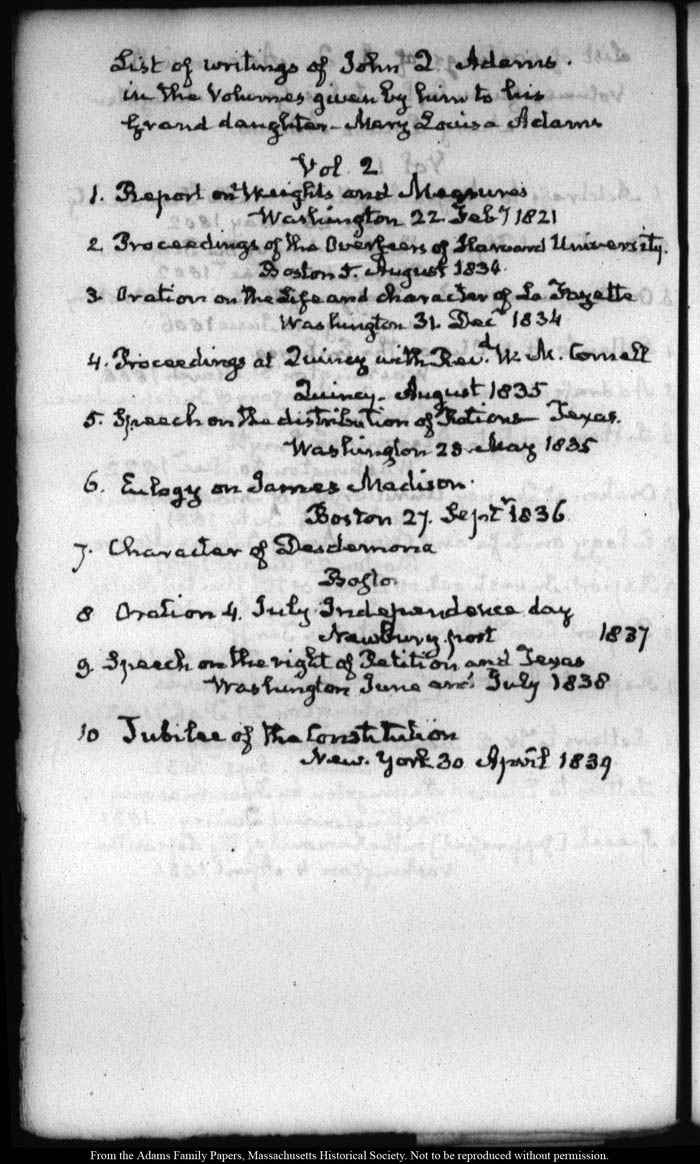 List of writings of John Q. Adams.
in the Volumes given by him to his
Grand daughter - Mary Louisa Adams
Vol. 2
1. Report on Weights and Measures
Washington 22 Feby 1821
2. Proceedings of the Overseers of Harvard University.
Boston 5. August 1834.
3. Oration on the Life and character of La Fayette
Washington 31. Decr 1834
4. Proceedings at Quincy with Revd. W. M. Cornell
Quincy - August 1835
5. Speech on the distribution of Rations - Texas.
Washington 25 May 1835
6. Eulogy on James Madison.
Boston 27. Septr 1836.
7. Character of Desdemona
Boston
8 Oration 4. July Independence day
Newbury port 1837
9. Speech on the right of Petition and Texas
Washington June and July 1838
10 Jubilee of the Constitution
New. York 30 April 1839
From the Adams Family Papers, Massachusetts Historical Society. Not to be reproduced without permission.